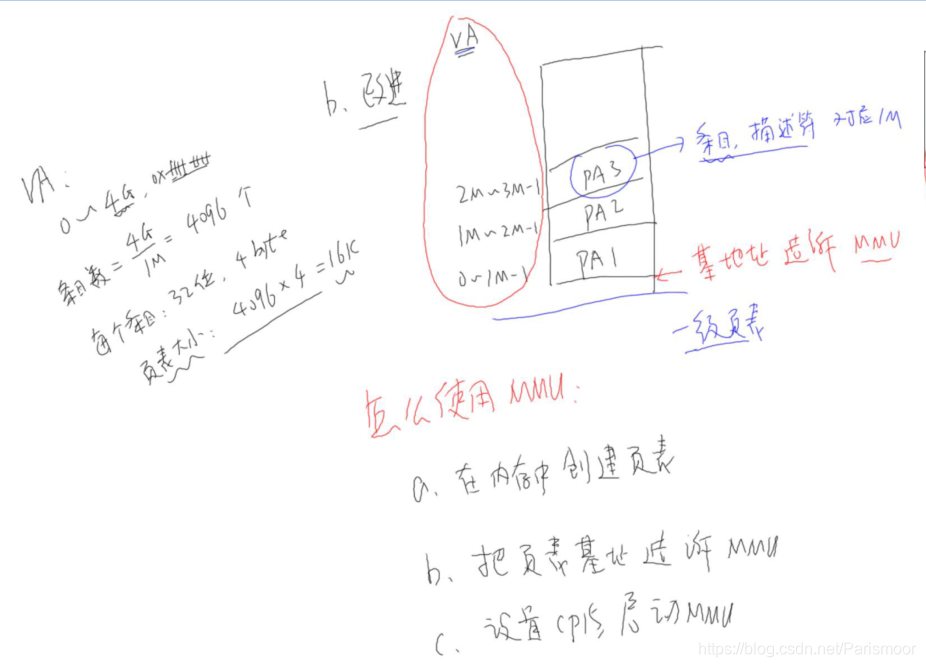 b、改进
VA
VA:
0~4G,0x
条目数 = 4G/1M = 4096 个
每个条目:32位,4byte
页表大小:4096×4=16K
2M~3M-1
1M~2M-1
0~1M-1
PA3
PA2
PA1
条目,描述符 对应1M
基地址 告诉 MMU
一级页表
怎么使用MMU:
a、在内存中创建页表
b、把页表基址告诉MMU
c、设置CP15,启动MMU
https://blog.csdn.net/Parismoor